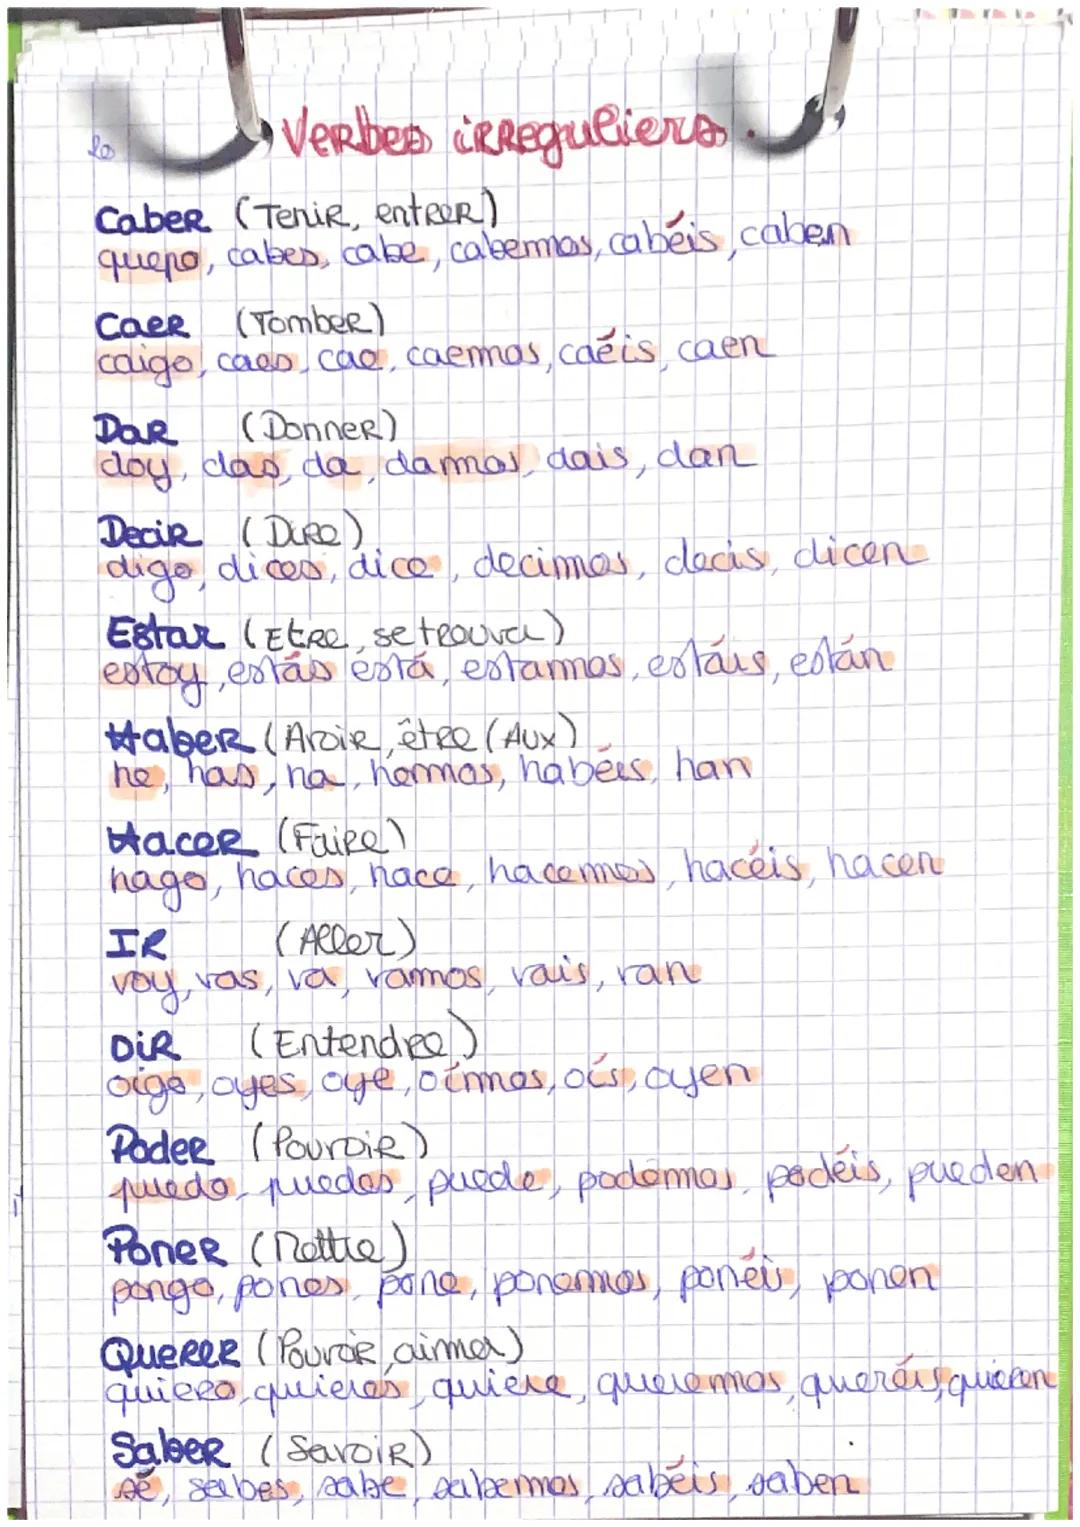 Verbes irreguliers.
Caber (Tenir, entrer)
quepo, cabes, cabe, cabemos, cabéis, caben
Caer (Tomber)
caigo, caes, cae, caemos, caéis, caen
Dar (Donner)
doy, das, da, damos, dais, dan
Decir (Dire)
digo, dices, dice, decimos, decis, dicen
Estar (Etre, se trouver)
estoy, estás está, estamos, estáis, están
Haber (Avoir, être (Aux)
he, has, ha, hemos, habéis, han
Hacer (Faire)
hago, haces, hace, hacemos, hacéis, hacen
IR (Aller)
voy, vas, va, vamos, vais, van
Oir (Entendre)
oigo, oyes, oye, oímos, oís, oyen
Poder (Pouvoir)
puedo, puedes, puede, podemos, podéis, pueden
Poner (Mettre)
pongo, pones, pone, ponemos, ponéis, ponen
Querer (Pouvoir, aimer)
quiero, quieres, quiere, queremos, queréis, quieren
Saber (Savoir)
sé, sabes, sabe, sabemos, sabéis, saben